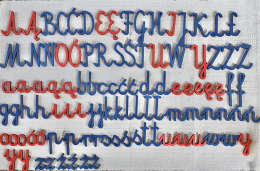 AĄBCĆDEĘFGHIJKLŁ
MNŃOÓPRSŚTUWYZŹŻ
aaaąąbbccććddeeeęęff
gghhiiijjkkllłłmmnnńń
oooóópprrssśśttuuuwwwy
yyzzźźżż